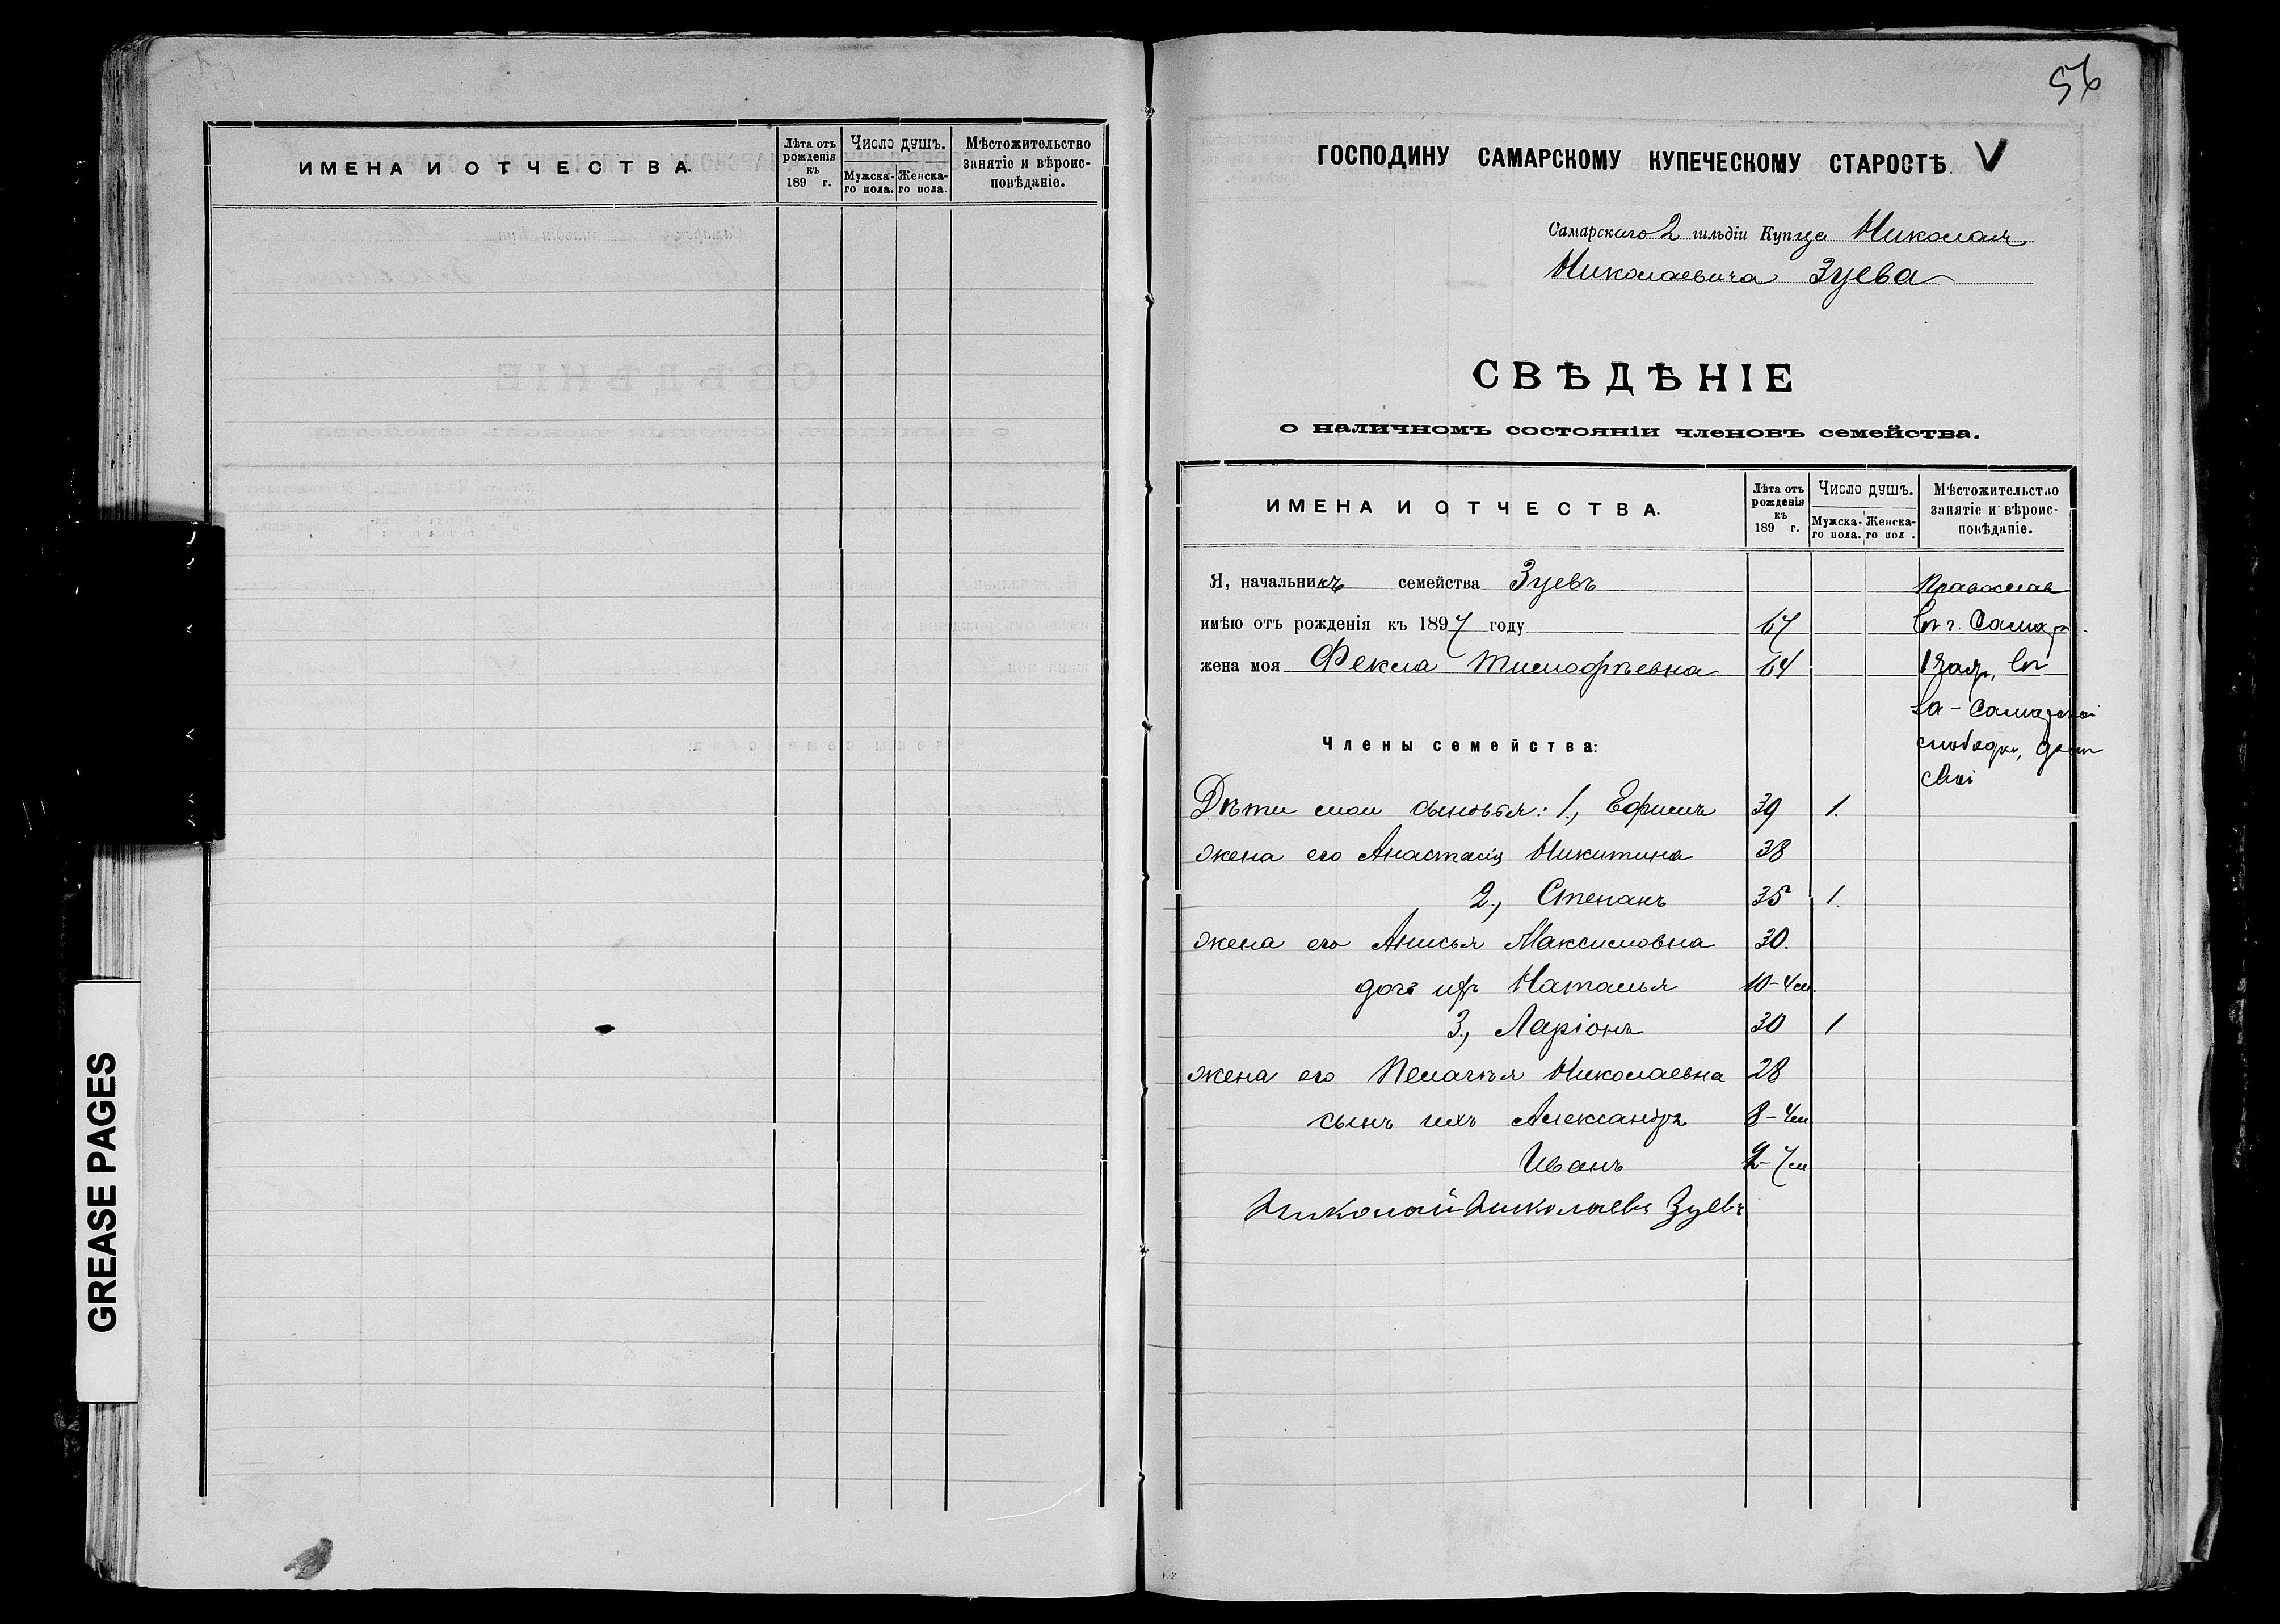 ИМЕНА И ОТЧЕСТВА.
Лѣта отъ рожденія къ 189 г.
Число душъ.
Мужска-го пола.
Женска-го пола.
Мѣстожительство занятіе и вѣроис-повѣданіе.
GREASE PAGES
56
ГОСПОДИНУ САМАРСКОМУ КУПЕЧЕСКОМУ СТАРОСТѢ. V
Самарскаго 2 гильдіи Купца Николая
Николаевича Зуева
СВѢДѢНІЕ
о наличномъ состояніи членовъ семейства.
ИМЕНА И ОТЧЕСТВА.
Лѣта отъ рожденія къ 189 г.
Число душъ.
Мужска-го пола.
Женска-го пол .
Мѣстожительство занятіе и вѣроис-повѣданіе.
Я, начальникъ семейства Зуевъ Православ
имѣю отъ рожденія къ 1897 году 67 въ г. Самар
жена моя Фекла Тимофѣевна 64
За-Самарской
Члены семейства: слободки, домъ
свой
Дѣти мои сыновья: 1, Ефимъ 39 1.
жена его Анастасія Никитина 38
2, Степанъ 35 1.
жена его Анисья Максимовна 30.
дочь ихъ Наталья 10-4м.
3, Ларіонъ 30 1
жена его Пелагѣя Николаевна 28
сынъ ихъ Александръ 8-4м
Иванъ 2-7м
Николай Николаевъ Зуевъ